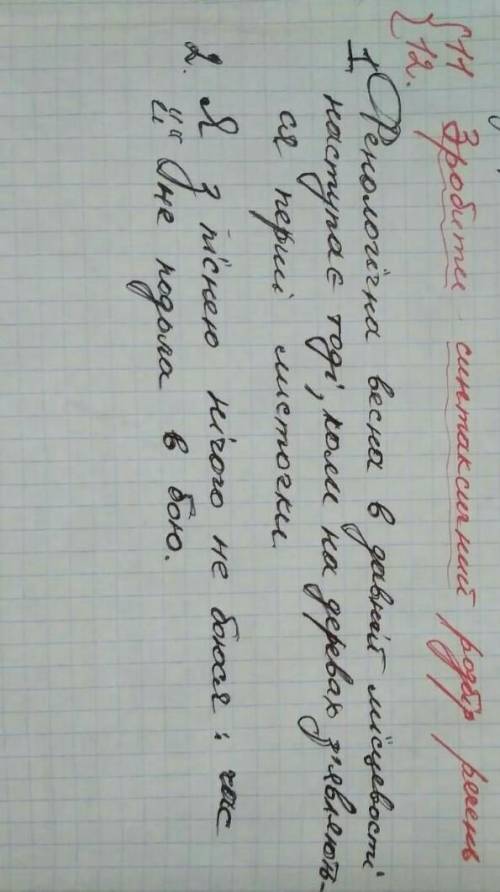 {11
12. Зробити синтаксичний розбір речень
1 Фенологічна весна в даній місцевості
наступає тоді, коли на деревах з'являють-
ся перші листочки.
2. Я з піснею нічого не боюся і час
її не подола в бою.